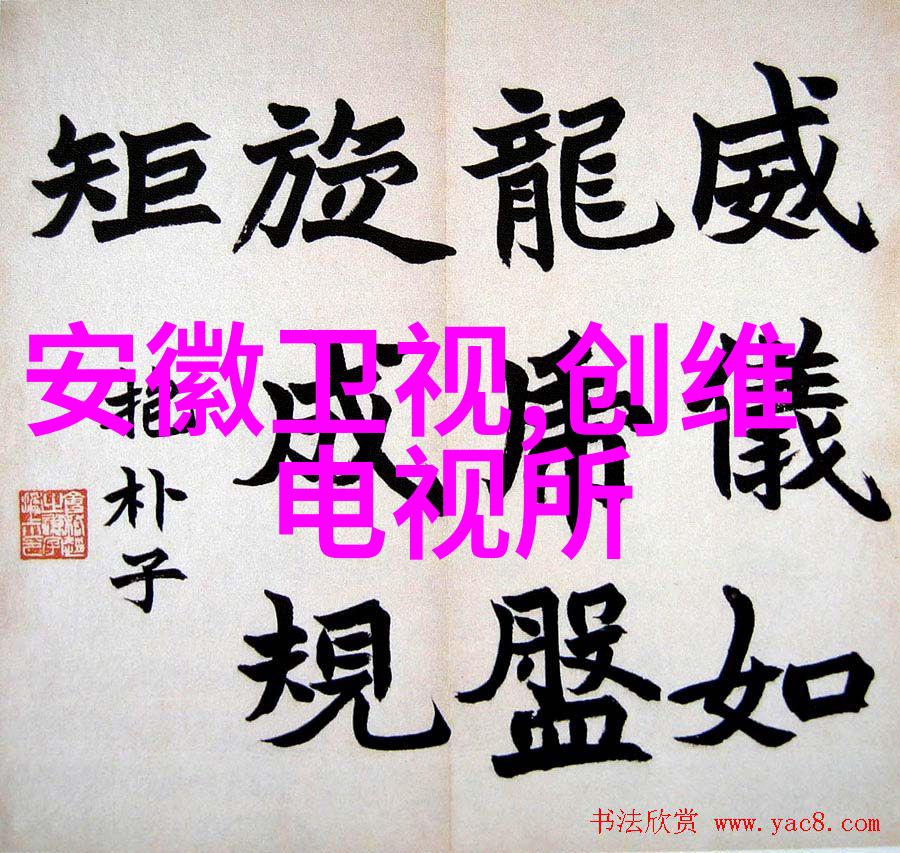 威儀如
龍虎盤
旋成規
矩
抱朴子
安徽卫视,创维
电视所
书法欣赏 www.yac8.com